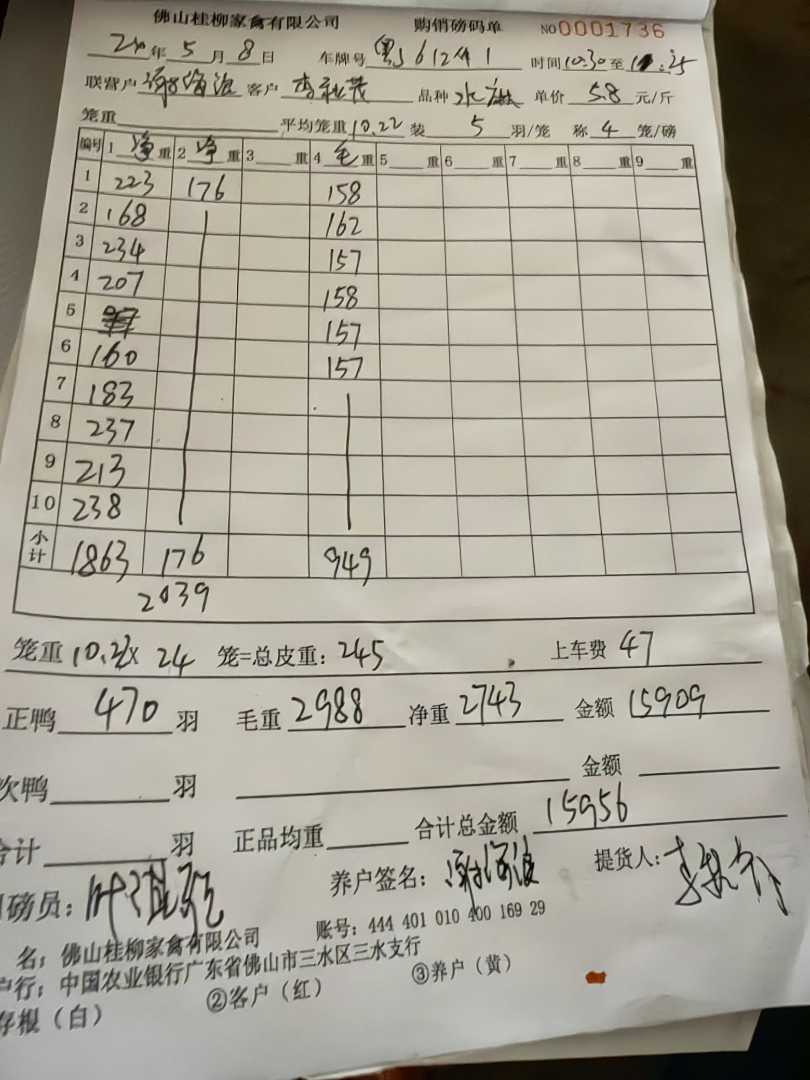 佛山桂柳家禽有限公司 购销磅码单 NO0001736
年 5 月 8 日 车牌号 粤J61241 时间 10:30 至
联营户 谢海浪 客户 品种 水 单价 5.8 元/斤
笼重 平均笼重 10.22 装 5 羽/笼 称 4 笼/磅
编号 1 净 重 2 净 重 3 重 4 毛 重 5 重 6 重 7 重 8 重 9 重
1 223 176 158
2 168 162
3 234 157
4 207 158
5 157
6 160 157
7 183
8 237
9 213
10 238
小计 1863 176 949
2039
笼重 10.22 x 24 笼=总皮重: 245 上车费 47
正鸭 470 羽 毛重 2988 净重 2743 金额 15909
次鸭 羽 金额
合计 羽 正品均重 合计总金额 15956
磅员: 养户签名: 谢海浪 提货人:
名: 佛山桂柳家禽有限公司 账号: 444 401 010 400 169 29
户行: 中国农业银行广东省佛山市三水区三水支行
存根(白) ②客户(红) ③养户(黄)